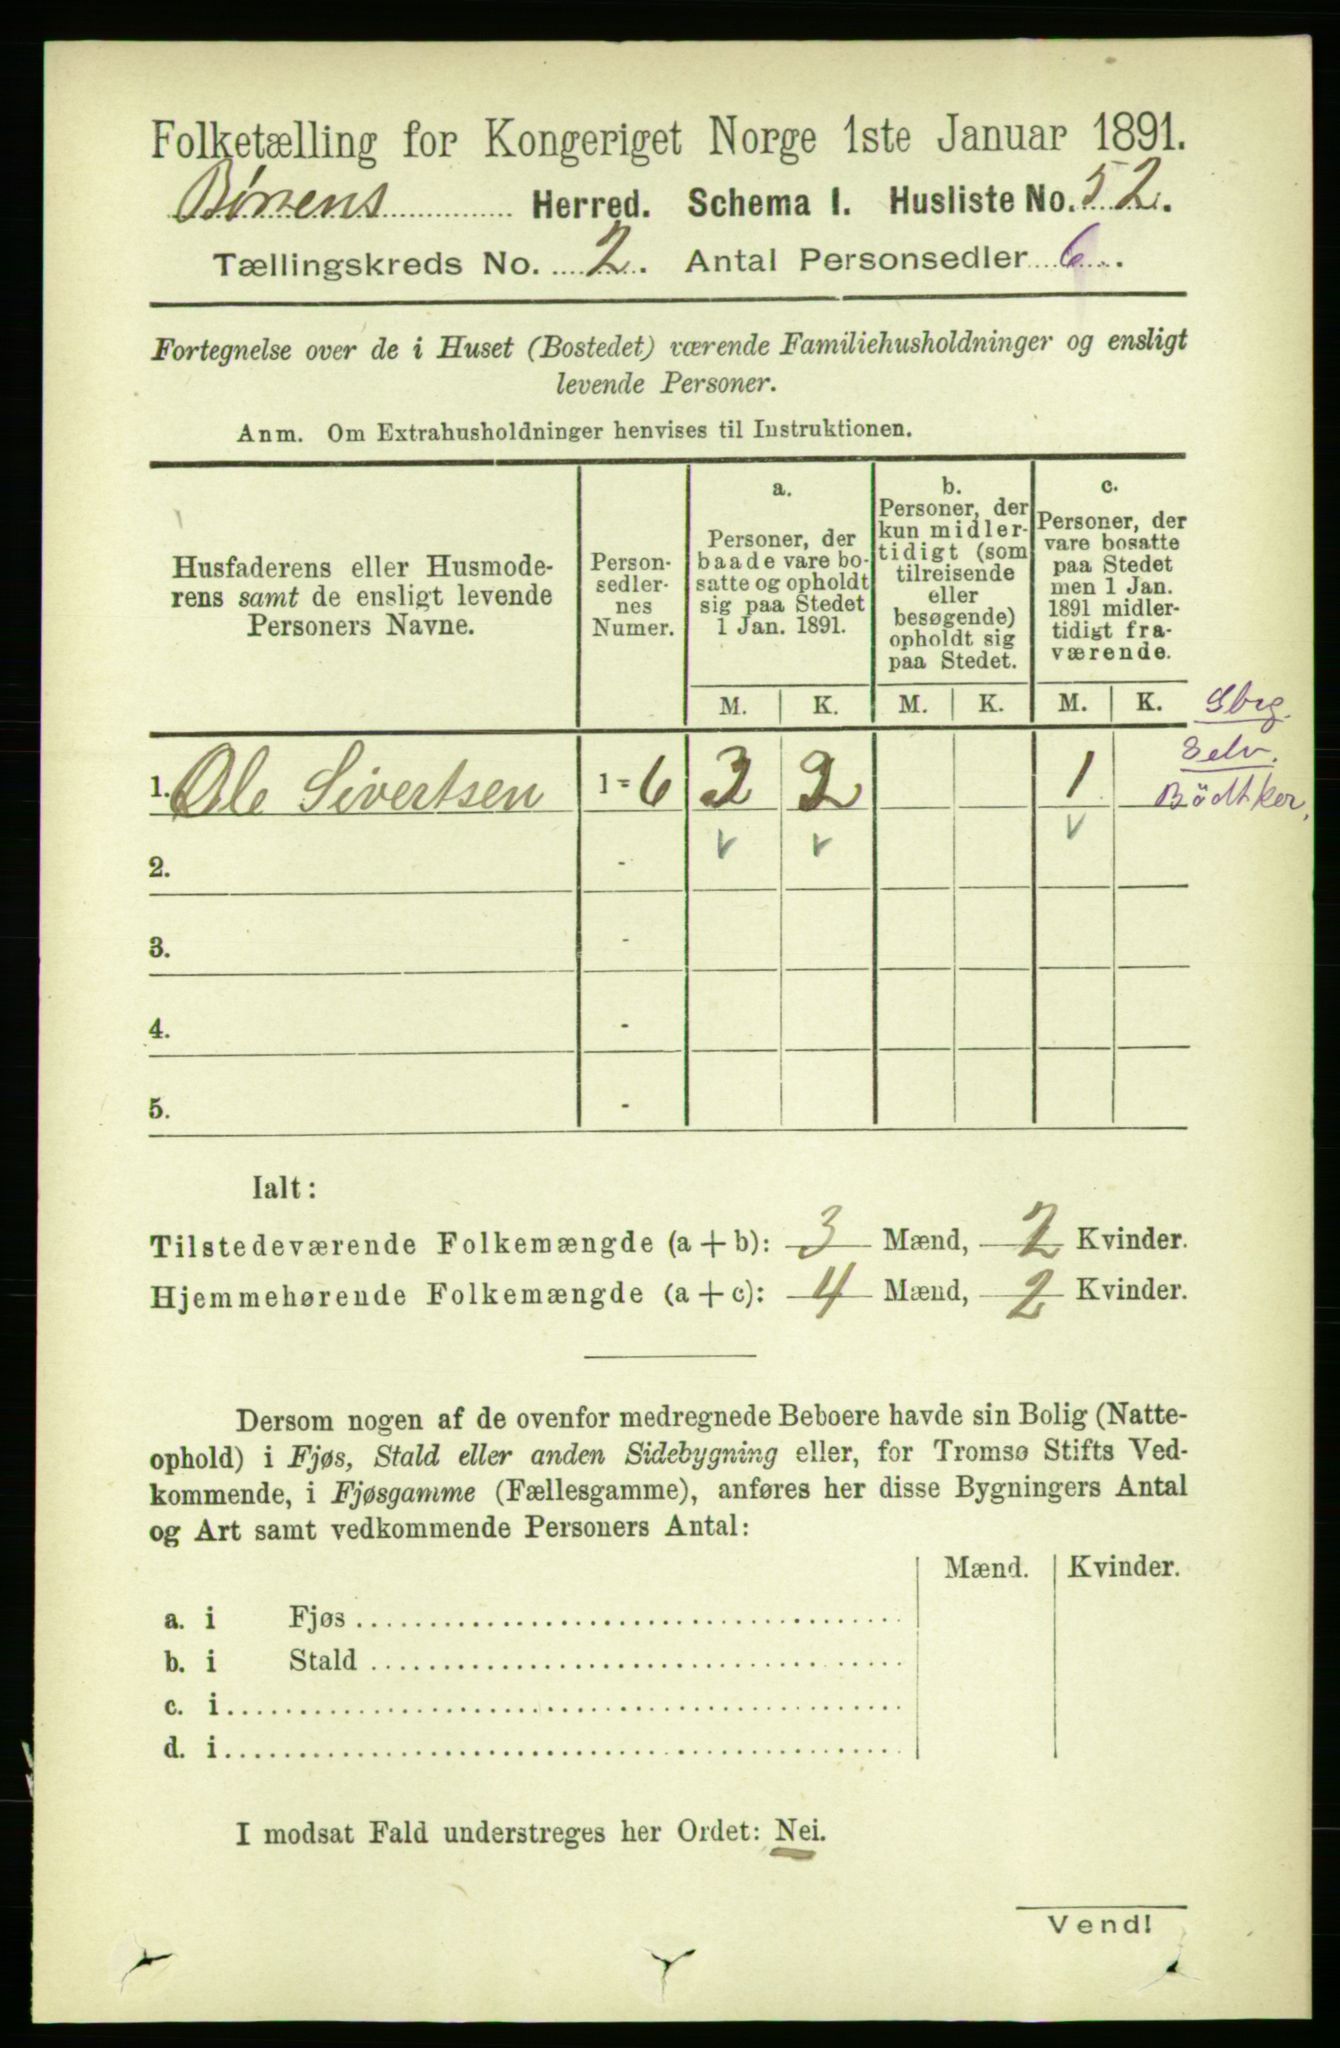 Folketælling for Kongeriget Norge 1ste Januar 1891.
Herred. Schema I. Husliste No. 52.
Tællingskreds No. 2. Antal Personsedler 6.
Fortegnelse over de i Huset (Bostedet) værende Familiehusholdninger og ensligt
levende Personer.
Anm. Om Extrahusholdninger henvises til Instruktionen.
Husfaderens eller Husmode-
rens samt de ensligt levende
Personers Navne.
Person-
sedler-
nes
Numer.
a.
Personer, der
baade vare bo-
satte og opholdt
sig paa Stedet
1 Jan. 1891.
b.
Personer, der
kun midler-
tidigt (som
tilreisende
eller
besøgende)
opholdt sig
paa Stedet.
c.
Personer, der
vare bosatte
paa Stedet
men 1 Jan.
1891 midler-
tidigt fra-
værende.
M. K. M. K. M. K.
Sbrg.
Selv.
Bödtker.
1. Ole Sivertsen 1 - 6 3 2 1
2. -
3. -
4. -
5. -
Ialt:
Tilstedeværende Folkemængde (a + b): 3 Mænd, 2 Kvinder.
Hjemmehørende Folkemængde (a + c): 4 Mænd, 2 Kvinder.
Dersom nogen af de ovenfor medregnede Beboere havde sin Bolig (Natte-
ophold) i Fjøs, Stald eller anden Sidebygning eller, for Tromsø Stifts Ved-
kommende, i Fjøsgamme (Fællesgamme), anføres her disse Bygningers Antal
og Art samt vedkommende Personers Antal:
Mænd. Kvinder.
a. i Fjøs
b. i Stald
c. i
d. i
I modsat Fald understreges her Ordet: Nei.
Vend!